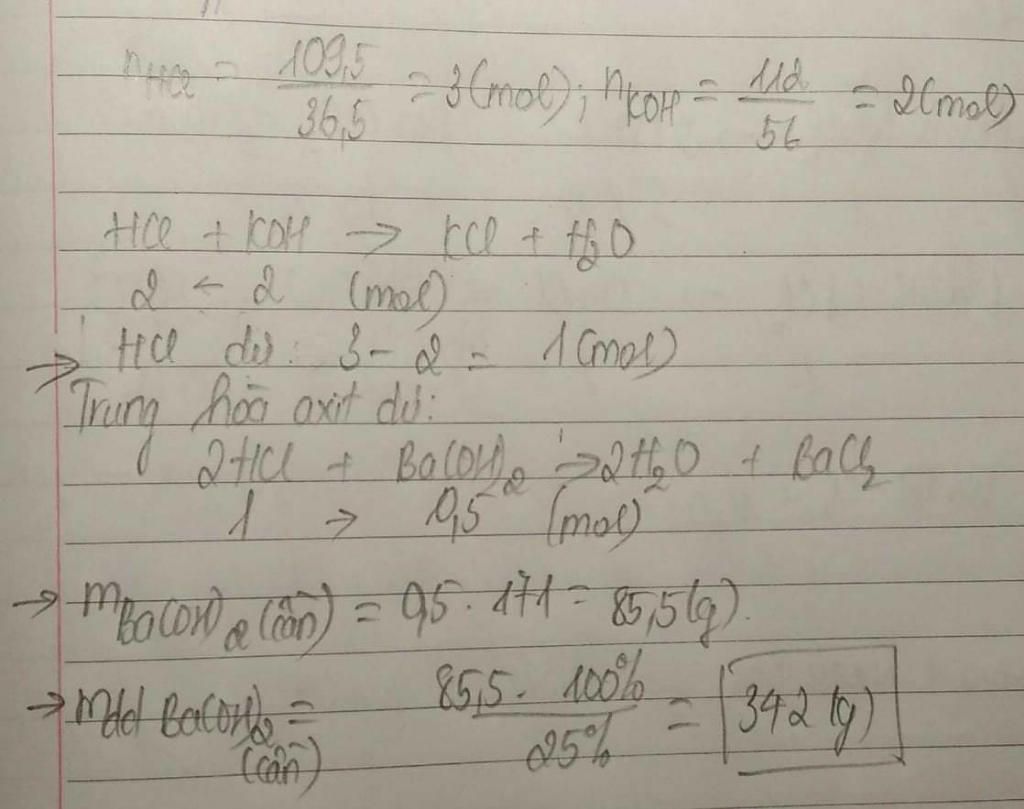 n_HCl = 109,5/36,5 = 3(mol); n_KOH = 112/56 = 2(mol)
HCl + KOH → KCl + H₂O
2 ← 2 (mol)
→ HCl dư: 3 - 2 = 1(mol)
Trung hoà axit dư:
2HCl + Ba(OH)₂ → 2H₂O + BaCl₂
1 → 0,5 (mol)
→ m_Ba(OH)₂ (cần) = 0,5 . 171 = 85,5(g).
→ mdd Ba(OH)₂ (cần) = 85,5 . 100%/25% = 342 (g)